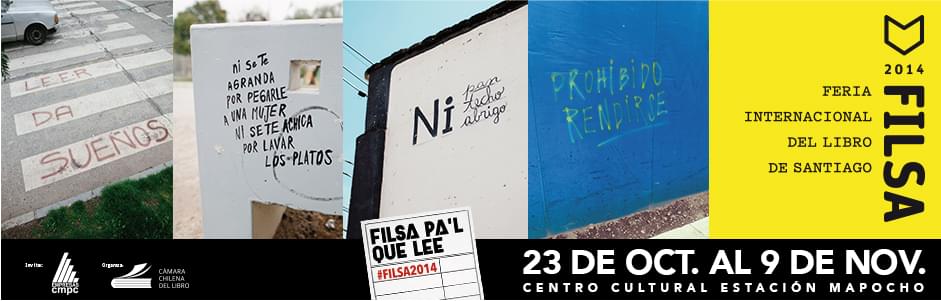 LEER
DA
SUEÑOS
ni se te
AGRANDA
POR PEGARLE
A UNA MUJER
NI SE TE ACHICA
POR LAVAR
LOS PLATOS
Ni pan
techo
abrigo
PROHIBIDO
RENDIRSE
2014
FILSA
FERIA
INTERNACIONAL
DEL LIBRO
DE SANTIAGO
Invita:
EMPRESAS
cmpc
Organiza:
CÁMARA
CHILENA
DEL LIBRO
FILSA PA'L
QUE LEE
#FILSA2014
23 DE OCT. AL 9 DE NOV.
CENTRO CULTURAL ESTACIÓN MAPOCHO